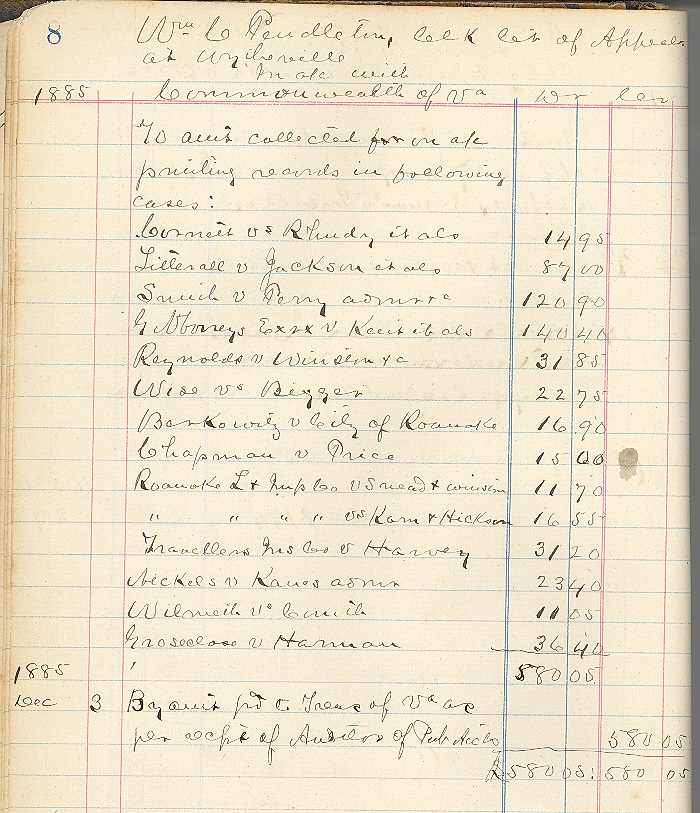 8 Wm C Pendleton, Clk Crt of Appeals
at Wytheville
In a/c with
1885 Commonwealth of Va Dr Cr
To amt collected for on a/c
printing records in following
cases:
Cornett vs Rhudy et als 14 95
Litterall v Jackson et als 87 00
Smith v Perry admr &c 120 90
Exrx v et als 140 40
Reynolds v Winston &c 31 85
Wise vs Bigger 22 75
Berkowitz v City of Roanoke 16 90
Chapman v Price 15 60
Roanoke L & Imp Co vs Snead & Winston 11 70
" " " " vs Karn & Hickson 16 55
Travellers Ins Co v Harvey 31 20
Nickels v Kanes admr 23 40
vs 11 05
Groseclose v Harman 36 40
1885 580 05
Dec 3 By amt pd to Treas of Va as
per recpt of Auditor of Pub Accts 580 05
$580 05: 580 05